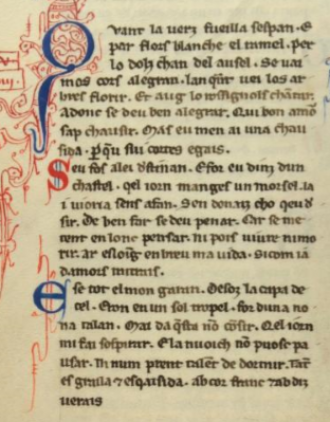 Quant la uerz fueilla sespan. E
par flors blanche el ramel. per
lo dolz chan del ausel. Se uai
mos cors alegran. Lanquãt uei los ar
bres florir. Et aug lo rossignols chãtar.
Adonc se deu ben alegrar. Qui bon amõ
sap chausir. Mas eu men ai una chau
sida. per qu siu cortes egais.
Seu fos alei destinan. Efor eu dinz dun
chastel. qel iorn manges un morsel. la
i uiuria senz afan. Sen donaiz cho qeu de
sir. De ben far se deu penar. Car se me
tent en lonc pensar. ni pois uiure ni mo
rir. ar esloig en breu ma uida. si com ia
damors
E se tot el mon garan. Desoz la capa de
cel. Eron en un sol tropel. for duna no
na talan. Mai da qsta nõ cõsir. Qel iorn
mi fai sospirar. Ela nuoich nõ puose pa
usar. Ni num prent talẽt de dormir. Tãt
es graila 7 esquisida. ab cor franc 7 ab diz
uerais